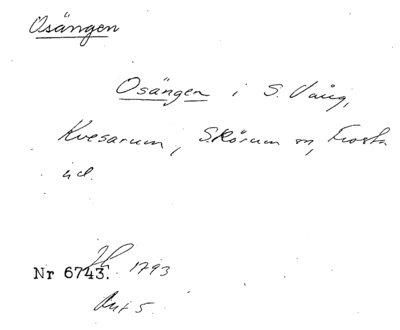 Osängen
Osängen i S. Vång,
Kvesarum, S. Rörum sn, Frosta
hd.
Nr 6743. 1793
Akt 5.